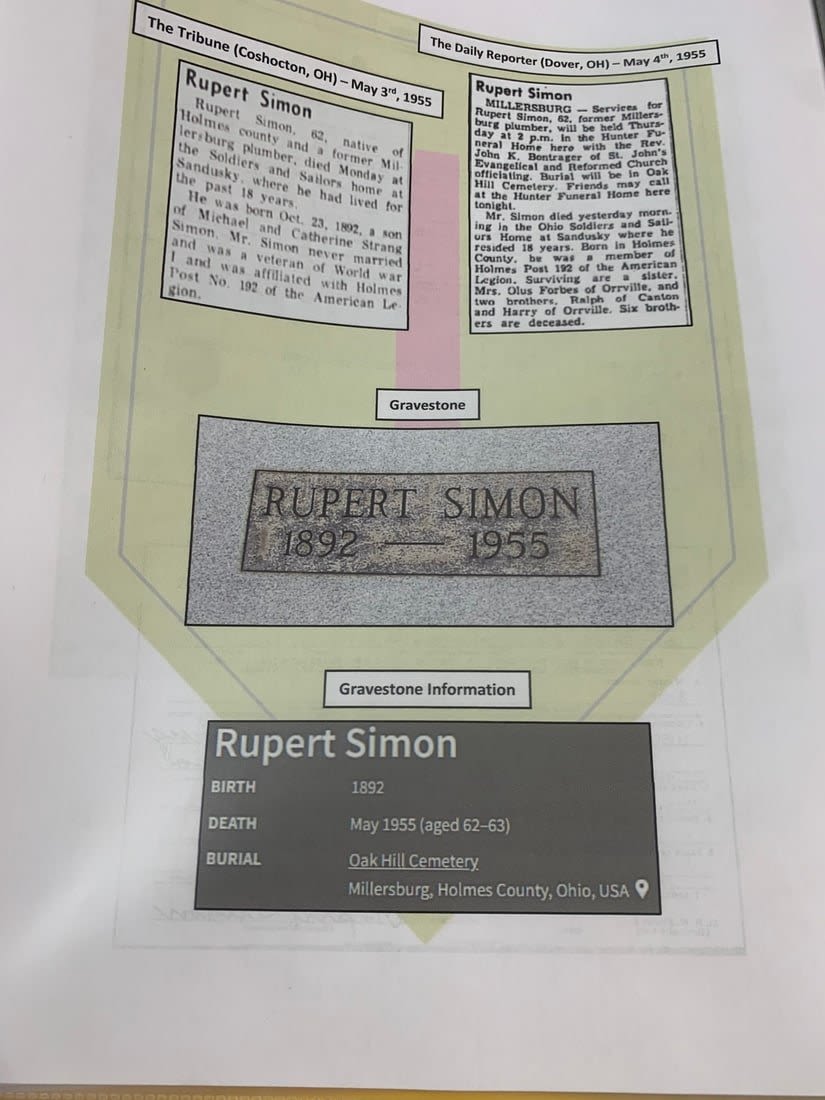 The Tribune (Coshocton, OH) – May 3rd, 1955
Rupert Simon
Rupert Simon, 62, native of
Holmes county and a former Mil-
lersburg plumber, died Monday at
the Soldiers and Sailors home at
Sandusky, where he had lived for
the past 18 years.
He was born Oct. 23, 1892, a son
of Michael and Catherine Strang
Simon. Mr. Simon never married
and was a veteran of World war
I and was affiliated with Holmes
Post No. 192 of the American Le-
gion.
The Daily Reporter (Dover, OH) – May 4th, 1955
Rupert Simon
MILLERSBURG — Services for
Rupert Simon, 62, former Millers-
burg plumber, will be held Thurs-
day at 2 p.m. in the Hunter Fu-
neral Home here with the Rev.
John K. Bontrager of St. John's
Evangelical and Reformed Church
officiating. Burial will be in Oak
Hill Cemetery. Friends may call
at the Hunter Funeral Home here
tonight.
Mr. Simon died yesterday morn-
ing in the Ohio Soldiers and Sail-
ors Home at Sandusky where he
resided 18 years. Born in Holmes
County, he was a member of
Holmes Post 192 of the American
Legion. Surviving are a sister,
Mrs. Olus Forbes of Orrville, and
two brothers, Ralph of Canton
and Harry of Orrville. Six broth-
ers are deceased.
Gravestone
RUPERT SIMON
1892 — 1955
Gravestone Information
Rupert Simon
BIRTH 1892
DEATH May 1955 (aged 62–63)
BURIAL Oak Hill Cemetery
Millersburg, Holmes County, Ohio, USA